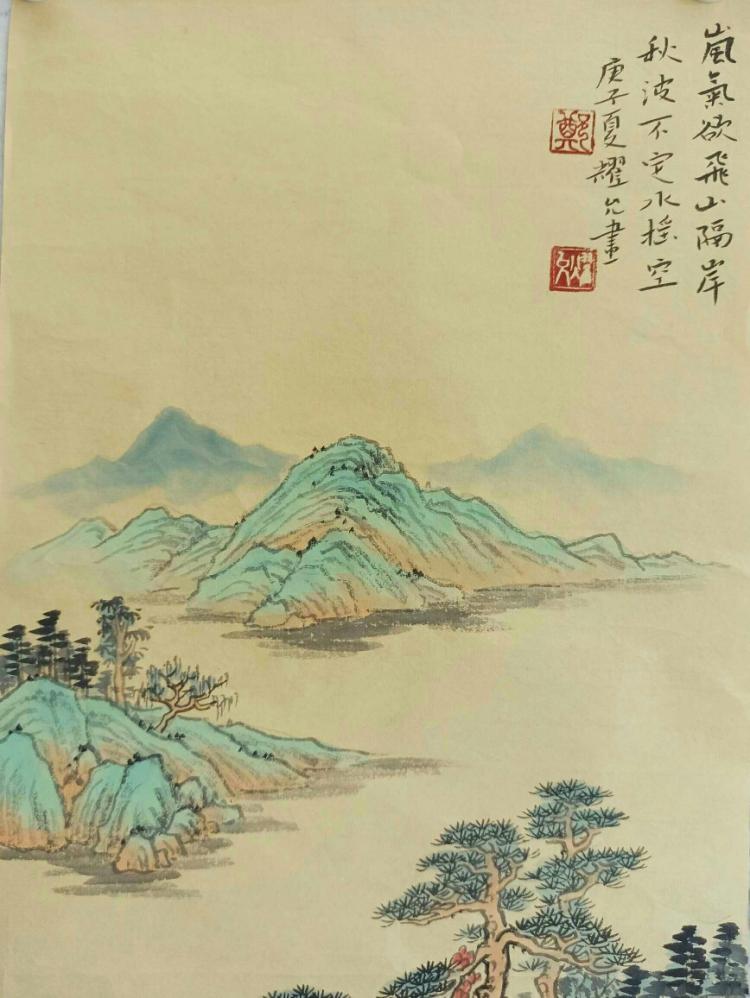 嵐氣欲飛山隔岸
秋波不定水摇空
庚子夏耀允畫
鄭